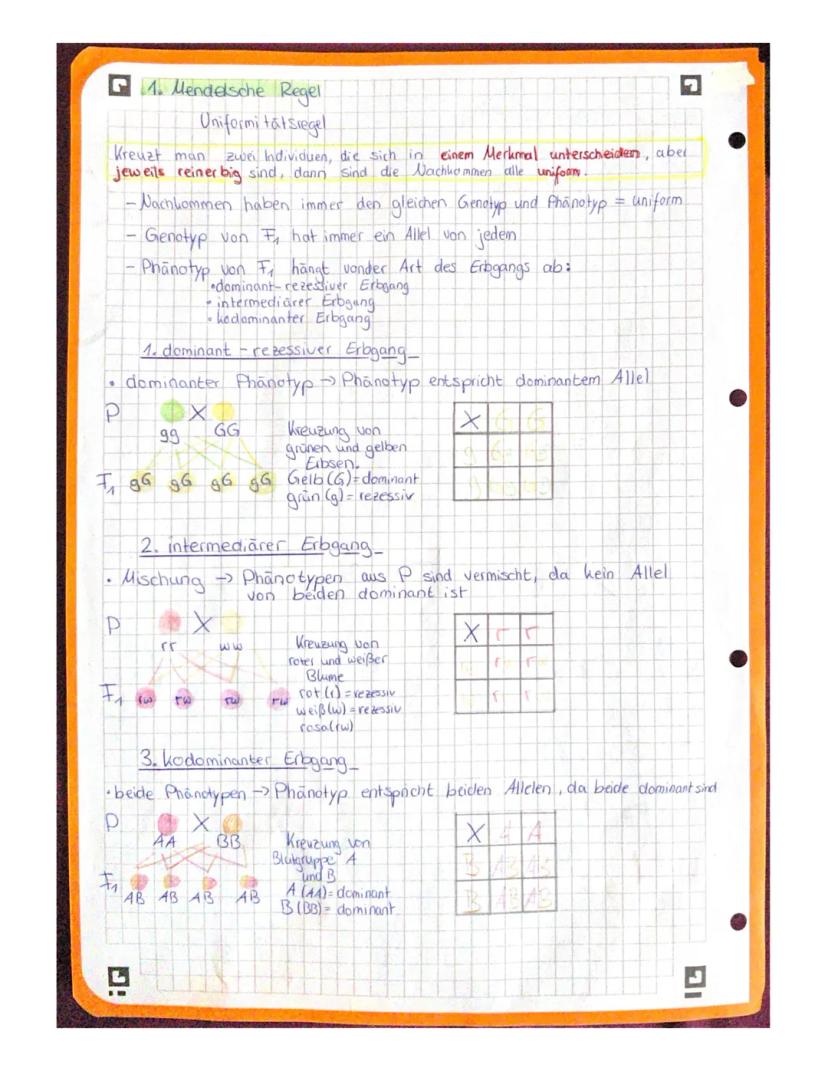 1. Mendelsche Regel
Uniformitätsregel
Kreuzt man zwei Individuen, die sich in einem Merkmal unterscheiden, aber
jeweils reinerbig sind, dann sind die Nachkommen alle uniform.
- Nachkommen haben immer den gleichen Genotyp und Phänotyp = uniform
- Genotyp von F1 hat immer ein Allel von jedem
- Phänotyp von F1 hängt von der Art des Erbgangs ab:
• dominant-rezessiver Erbgang
• intermediärer Erbgang
• kodominanter Erbgang
1. dominant - rezessiver Erbgang
• dominanter Phänotyp → Phänotyp entspricht dominantem Allel
P X
gg GG
F1 gG gG gG gG
Kreuzung von
grünen und gelben
Erbsen.
Gelb (G) = dominant
grün (g) = rezessiv
X G G
g G
g
2. intermediärer Erbgang
• Mischung → Phänotypen aus P sind vermischt, da kein Allel
von beiden dominant ist
P X
rr ww
F1 rw rw rw rw
Kreuzung von
roter und weißer
Blume
rot (r) = rezessiv
weiß (w) = rezessiv
rosa (rw)
X r r
r r
r r
3. kodominanter Erbgang
• beide Phänotypen → Phänotyp entspricht beiden Allelen, da beide dominant sind
P X
AA BB
F1 AB AB AB AB
Kreuzung von
Blutgruppe A
und B
A (AA) = dominant
B (BB) = dominant
X A A
B AB AB
B AB AB